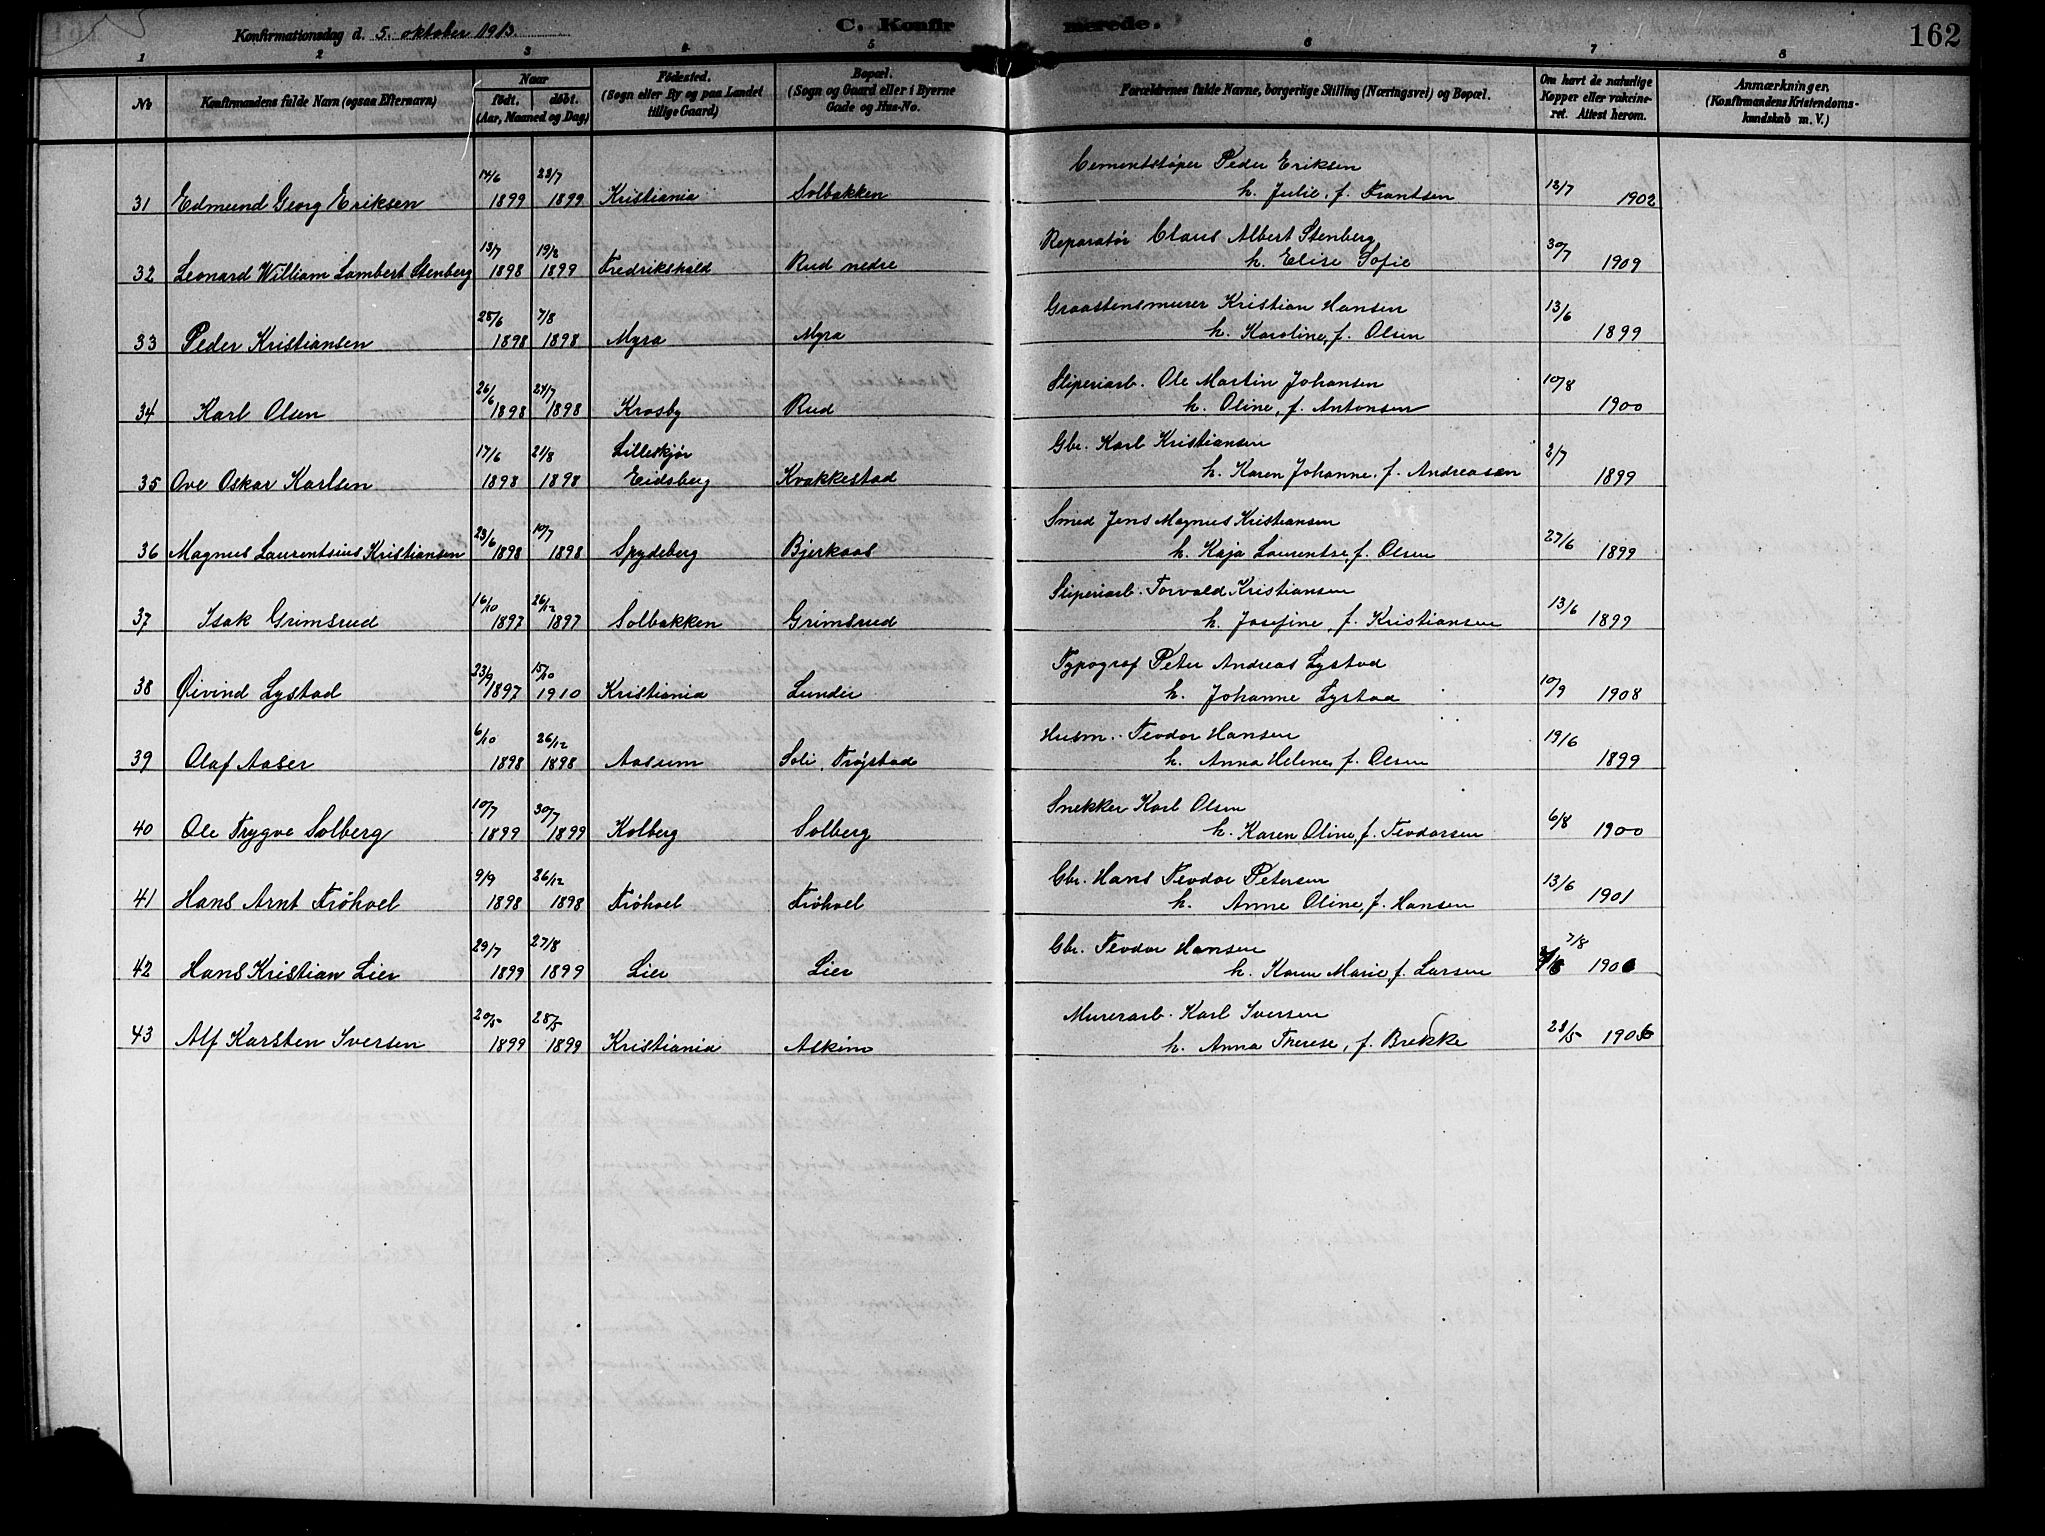 Konfirmationsdag d. 5. oktober 1913. C. Konfirmerede. 162
1 2 3 4 5 6 7 8
No
Konfirmandens fulde Navn (ogsaa Efternavn)
Naar
født. døbt.
(Aar, Maaned og Dag)
Fødested.
(Sogn eller By og paa Landet
tillige Gaard)
Bopæl.
(Sogn og Gaard eller i Byerne
Gade og Hus-No.
Forældrenes fulde Navne, borgerlige Stilling (Næringsvei) og Bopæl.
Om havt de naturlige
Kopper eller vakcine-
ret. Attest herom.
Anmærkninger.
(Konfirmandens Kristendoms-
kundskab m. V.)
14/6 23/7 Cementstøper Peder Eriksen
31 Edmund Georg Eriksen 1899 1899 Kristiania Solbakken h. Julie, f. Frantsen 18/7 1902
13/7 19/2 Reparatør Claus Albert Stenberg
32 Leonard William Lambert Stenberg 1898 1899 Fredrikshald Rud nedre h. Elise Sofie 30/7 1909
28/6 7/8 Graastensmurer Kristian Hansen
33 Peder Kristiansen 1898 1898 Myra Myra h. Karoline, f. Olsen 13/6 1899
26/6 24/7 Sliperiarb. Ole Martin Johansen
34 Karl Olsen 1898 1898 Krosby Rud h. Oline, f. Antonsen 10/8 1900
17/6 21/8 Lilleskjør Gbr. Karl Kristiansen
35 Ove Oskar Karlsen 1898 1898 Eidsberg Kvakkestad h. Karen Johanne, f. Andreasen 2/7 1899
23/6 10/7 Smed Jens Magnus Kristiansen
36 Magnus Laurentsius Kristiansen 1898 1898 Spydeberg Bjerkaas h. Kaja Laurentse, f. Olsen 27/6 1899
16/10 26/12 Sliperiarb. Torvald Kristiansen
37 Isak Grimsrud 1897 1897 Solbakken Grimsrud h. Josefine, f. Kristiansen 13/6 1899
23/9 15/10 Typograf Peter Andreas Lystad
38 Øivind Lystad 1897 1910 Kristiania Lunder h. Johanne Lystad 10/9 1908
6/10 26/12 Husm. Teodor Hansen
39 Olaf Aaser 1898 1898 Aasrum Soli, Trøgstad h. Anna Helene, f. Olsen 19/6 1899
10/7 30/7 Snekker Karl Olsen
40 Ole Trygve Solberg 1899 1899 Kolberg Solberg h. Karen Oline, f. Teodorsen 6/8 1900
9/9 26/12 Gbr. Hans Teodor Petersen
41 Hans Arnt Frøhoel 1898 1898 Frøhoel Frøhoel h. Anne Oline, f. Hansen 13/6 1901
29/7 27/8 Gbr. Teodor Hansen 7/8
42 Hans Kristian Lier 1899 1899 Lier Lier h. Karen Marie, f. Larsen 1906
20/5 28/5 Murerarb. Karl Iversen
43 Alf Karsten Iversen 1899 1899 Kristiania Askim h. Anna Therese, f. Brekke 23/5 1906